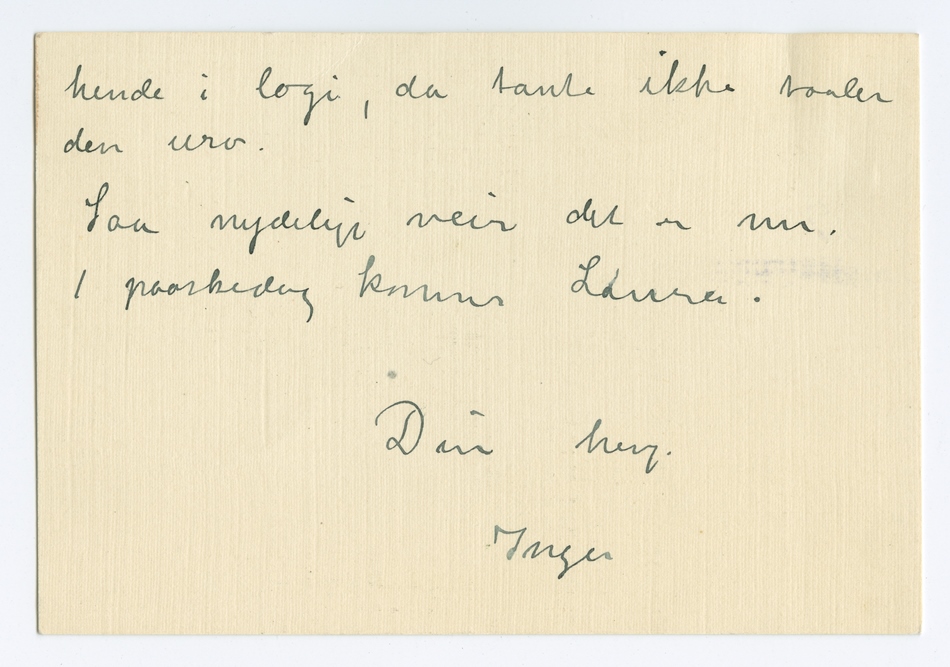 hende i logi, da tante ikke taaler
den uro.
Saa nydelige veir det er nu.
I paaskedag kommer Laura.
Din heng.
Inger